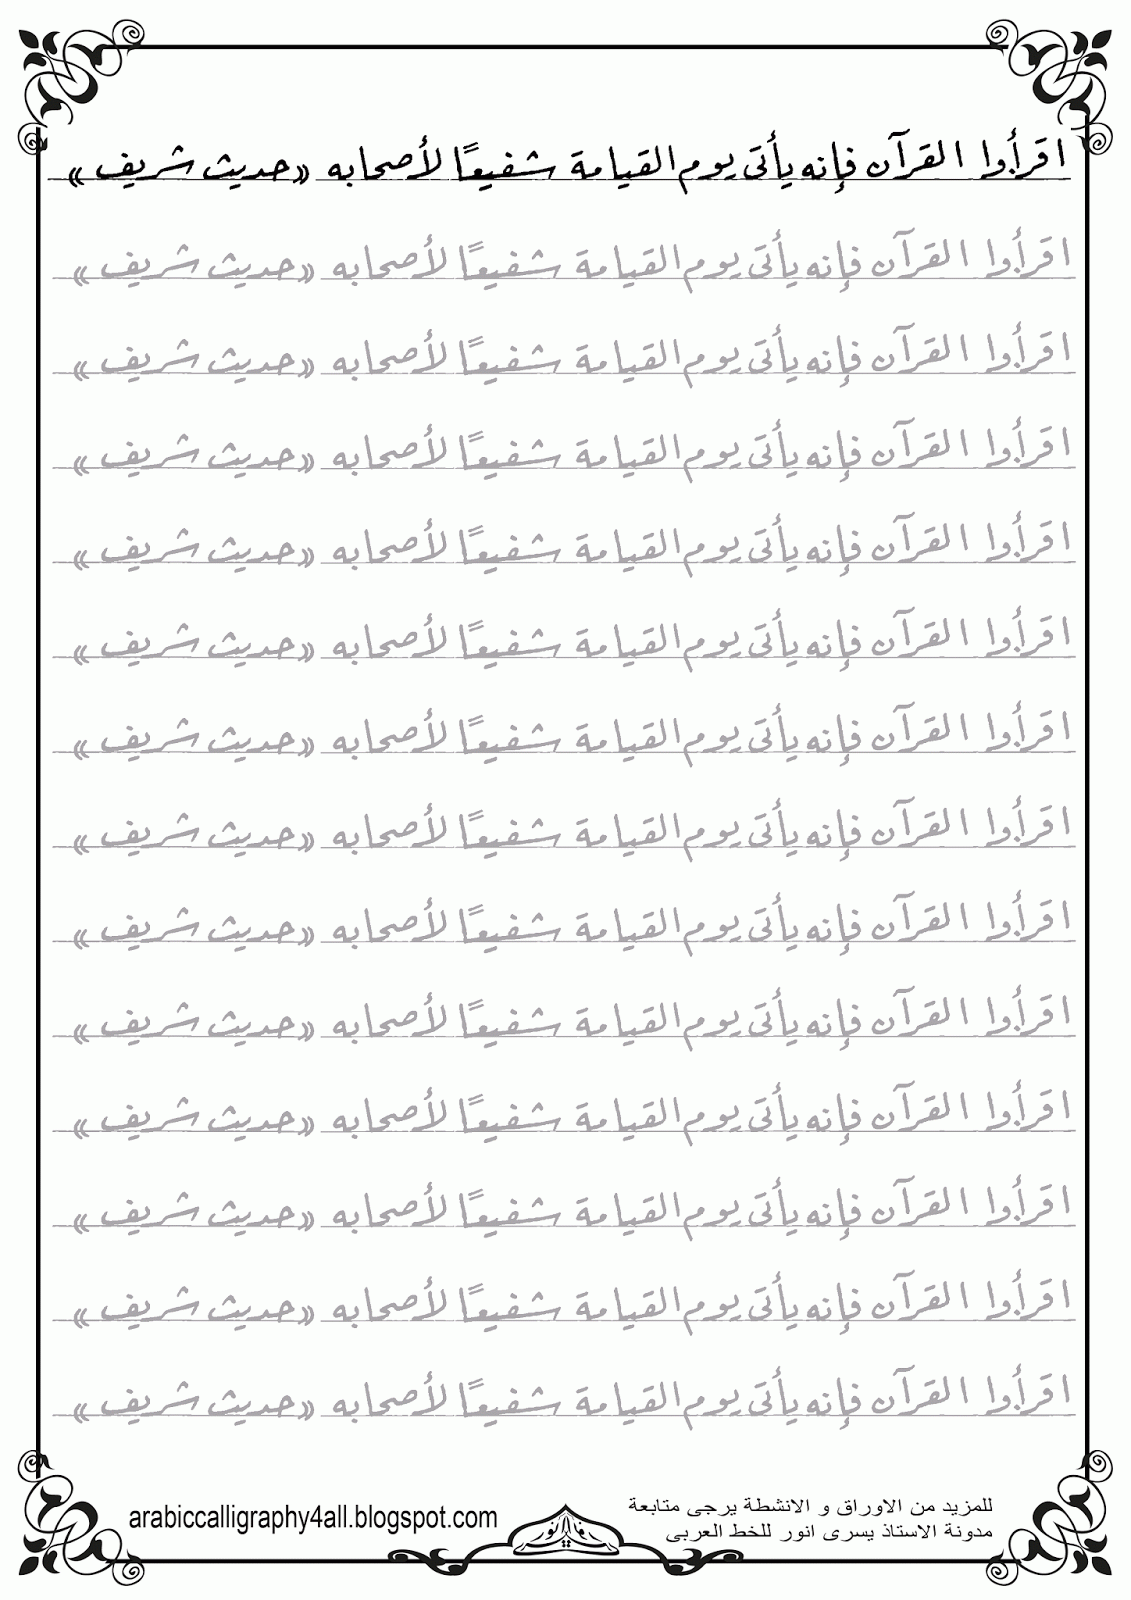 اقرأوا القرآن فإنه يأتى يوم القيامة شفيعًا لأصحابه «حديث شريف»
اقرأوا القرآن فإنه يأتى يوم القيامة شفيعًا لأصحابه «حديث شريف»
اقرأوا القرآن فإنه يأتى يوم القيامة شفيعًا لأصحابه «حديث شريف»
اقرأوا القرآن فإنه يأتى يوم القيامة شفيعًا لأصحابه «حديث شريف»
اقرأوا القرآن فإنه يأتى يوم القيامة شفيعًا لأصحابه «حديث شريف»
اقرأوا القرآن فإنه يأتى يوم القيامة شفيعًا لأصحابه «حديث شريف»
اقرأوا القرآن فإنه يأتى يوم القيامة شفيعًا لأصحابه «حديث شريف»
اقرأوا القرآن فإنه يأتى يوم القيامة شفيعًا لأصحابه «حديث شريف»
اقرأوا القرآن فإنه يأتى يوم القيامة شفيعًا لأصحابه «حديث شريف»
اقرأوا القرآن فإنه يأتى يوم القيامة شفيعًا لأصحابه «حديث شريف»
اقرأوا القرآن فإنه يأتى يوم القيامة شفيعًا لأصحابه «حديث شريف»
اقرأوا القرآن فإنه يأتى يوم القيامة شفيعًا لأصحابه «حديث شريف»
اقرأوا القرآن فإنه يأتى يوم القيامة شفيعًا لأصحابه «حديث شريف»
اقرأوا القرآن فإنه يأتى يوم القيامة شفيعًا لأصحابه «حديث شريف»
للمزيد من الاوراق و الانشطة يرجى متابعة
مدونة الاستاذ يسرى انور للخط العربى
arabiccalligraphy4all.blogspot.com